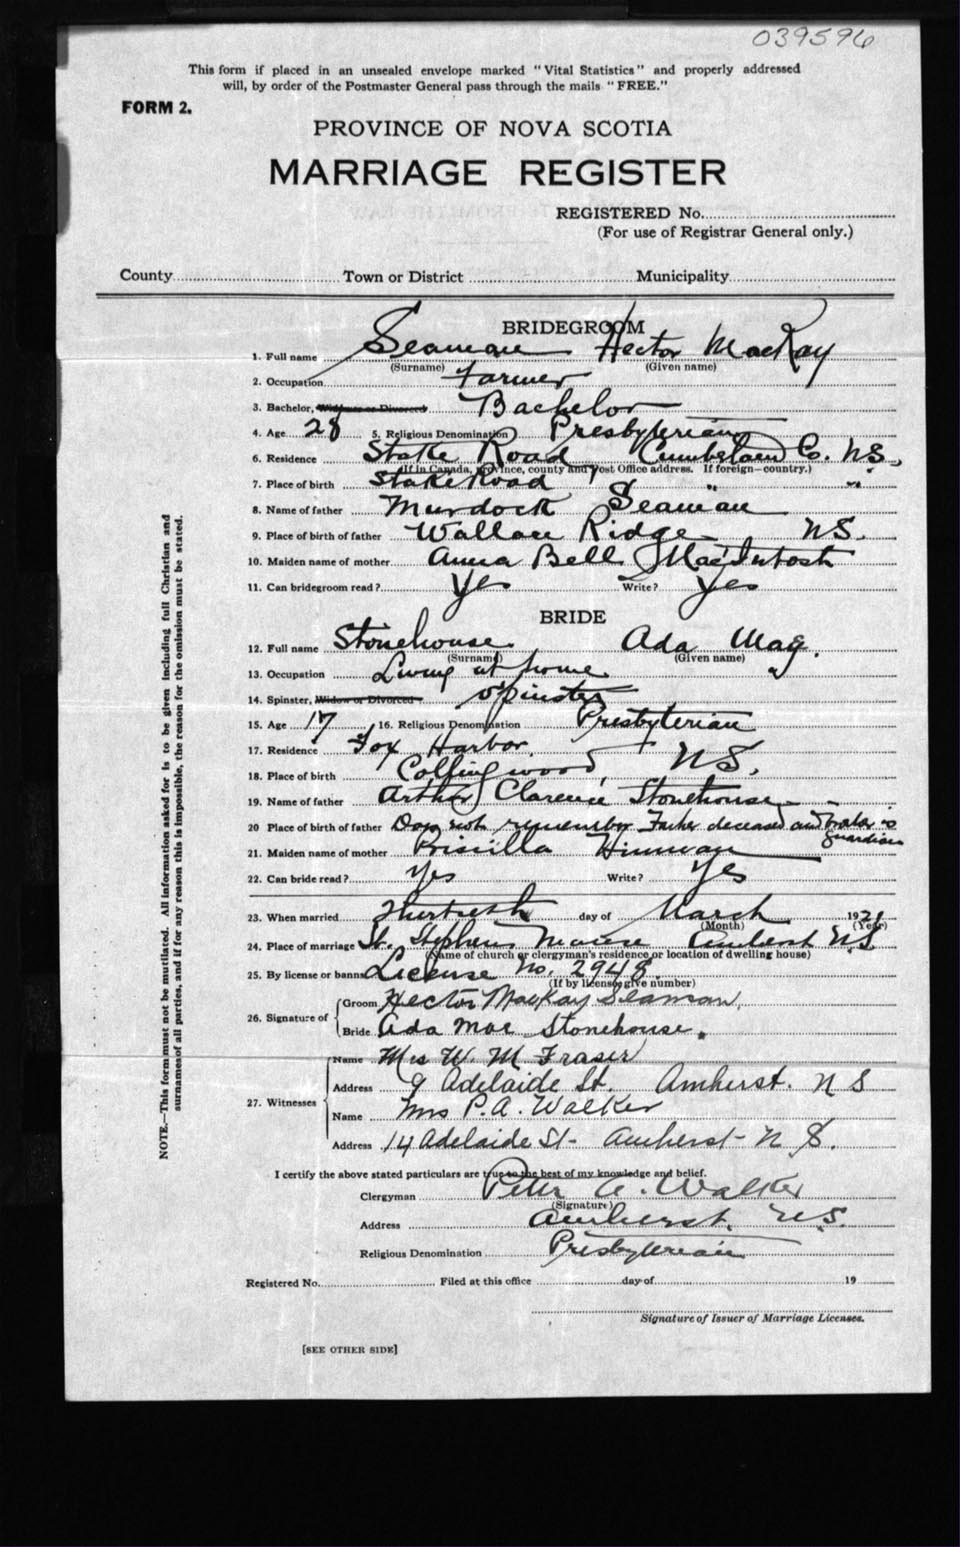 039596
This form if placed in an unsealed envelope marked "Vital Statistics" and properly addressed
will, by order of the Postmaster General pass through the mails "FREE."
FORM 2.
PROVINCE OF NOVA SCOTIA
MARRIAGE REGISTER
REGISTERED No.
(For use of Registrar General only.)
County Town or District Municipality
BRIDEGROOM
1. Full name Seaman Hector MacKay
(Surname) (Given name)
2. Occupation Farmer
3. Bachelor, Widower or Divorced Bachelor
4. Age 28 5. Religious Denomination Presbyterian
6. Residence Stake Road Cumberland Co. NS.
(If in Canada, province, county and Post Office address. If foreign—country.)
7. Place of birth Stake Road " "
8. Name of father Murdock Seaman
9. Place of birth of father Wallace Ridge NS.
10. Maiden name of mother Anna Bell MacIntosh
11. Can bridegroom read? Yes Write? Yes
BRIDE
12. Full name Stonehouse Ada May.
(Surname) (Given name)
13. Occupation Living at home
14. Spinster, Widow or Divorced Spinster
15. Age 17 16. Religious Denomination Presbyterian
17. Residence Fox Harbor
18. Place of birth Collingwood, NS.
19. Name of father Arthur Clarence Stonehouse
20 Place of birth of father Does not remember Father deceased and brother is
guardian
21. Maiden name of mother Priscilla Hinman
22. Can bride read? Yes Write? Yes
23. When married Thirtieth day of March 1921
(Month) (Year)
24. Place of marriage St. Stephens Manse Amherst NS
(Name of church or clergyman's residence or location of dwelling house)
25. By license or banns License No. 2948.
(If by license give number)
26. Signature of Groom Hector MacKay Seaman
Bride Ada Mae Stonehouse.
27. Witnesses Name Mrs W. M Fraser
Address 9 Adelaide St. Amherst. N S
Name Mrs P. A. Walker
Address 14 Adelaide St- Amherst- N S.
I certify the above stated particulars are true to the best of my knowledge and belief.
Clergyman Peter A. Walker
(Signature)
Address Amherst. N.S.
Religious Denomination Presbyterian
Registered No. Filed at this office day of 19
Signature of Issuer of Marriage Licenses.
[SEE OTHER SIDE]
NOTE.—This form must not be mutilated. All information asked for is to be given including full Christian and
surnames of all parties, and if for any reason this is impossible, the reason for the omission must be stated.